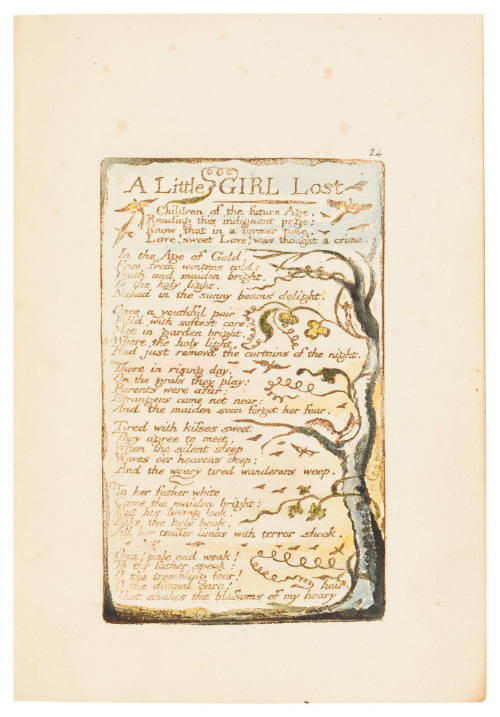 24
A Little GIRL Lost
Children of the future Age,
Reading this indignant page:
Know that in a former time,
Love! sweet Love! was thought a crime.
In the Age of Gold,
Free from winters cold:
Youth and maiden bright,
To the holy light,
Naked in the sunny beams delight.
Once a youthful pair
Fill'd with softest care:
Met in garden bright,
Where the holy light,
Had just remov'd the curtains of the night.
There in rising day,
On the grass they play:
Parents were afar:
Strangers came not near:
And the maiden soon forgot her fear.
Tired with kisses sweet
They agree to meet,
When the silent sleep
Waves oer heavens deep:
And the weary tired wanderers weep.
To her father white
Came the maiden bright:
But his loving look,
Like the holy book,
All her tender limbs with terror shook.
Ona! pale and weak!
To thy father speak:
O the trembling fear!
O the dismal care!
hair
That shakes the blossoms of my hoary